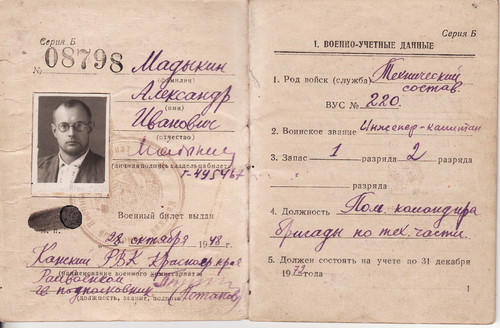 Серия Б
№ 08798
Мадыкин
(фамилия)
Александр
(имя)
Иванович
(отчество)
(личная подпись владельца билета)
Г-445467
Военный билет выдан
М. П.
28 октября 1948 г.
Канский РВК Красноярск края
(наименование военного комиссариата)
Райвоенком
подполковник Потапов
(должность, звание, подпись)
Серия Б
1. ВОЕННО-УЧЕТНЫЕ ДАННЫЕ
1. Род войск (служба) Технический
состав
ВУС № 220.
2. Воинское звание Инженер-капитан
3. Запас 1 разряда 2 разряда
разряда
4. Должность Пом. командира
бригады по тех. части.
5. Должен состоять на учете по 31 декабря
1972 года
1